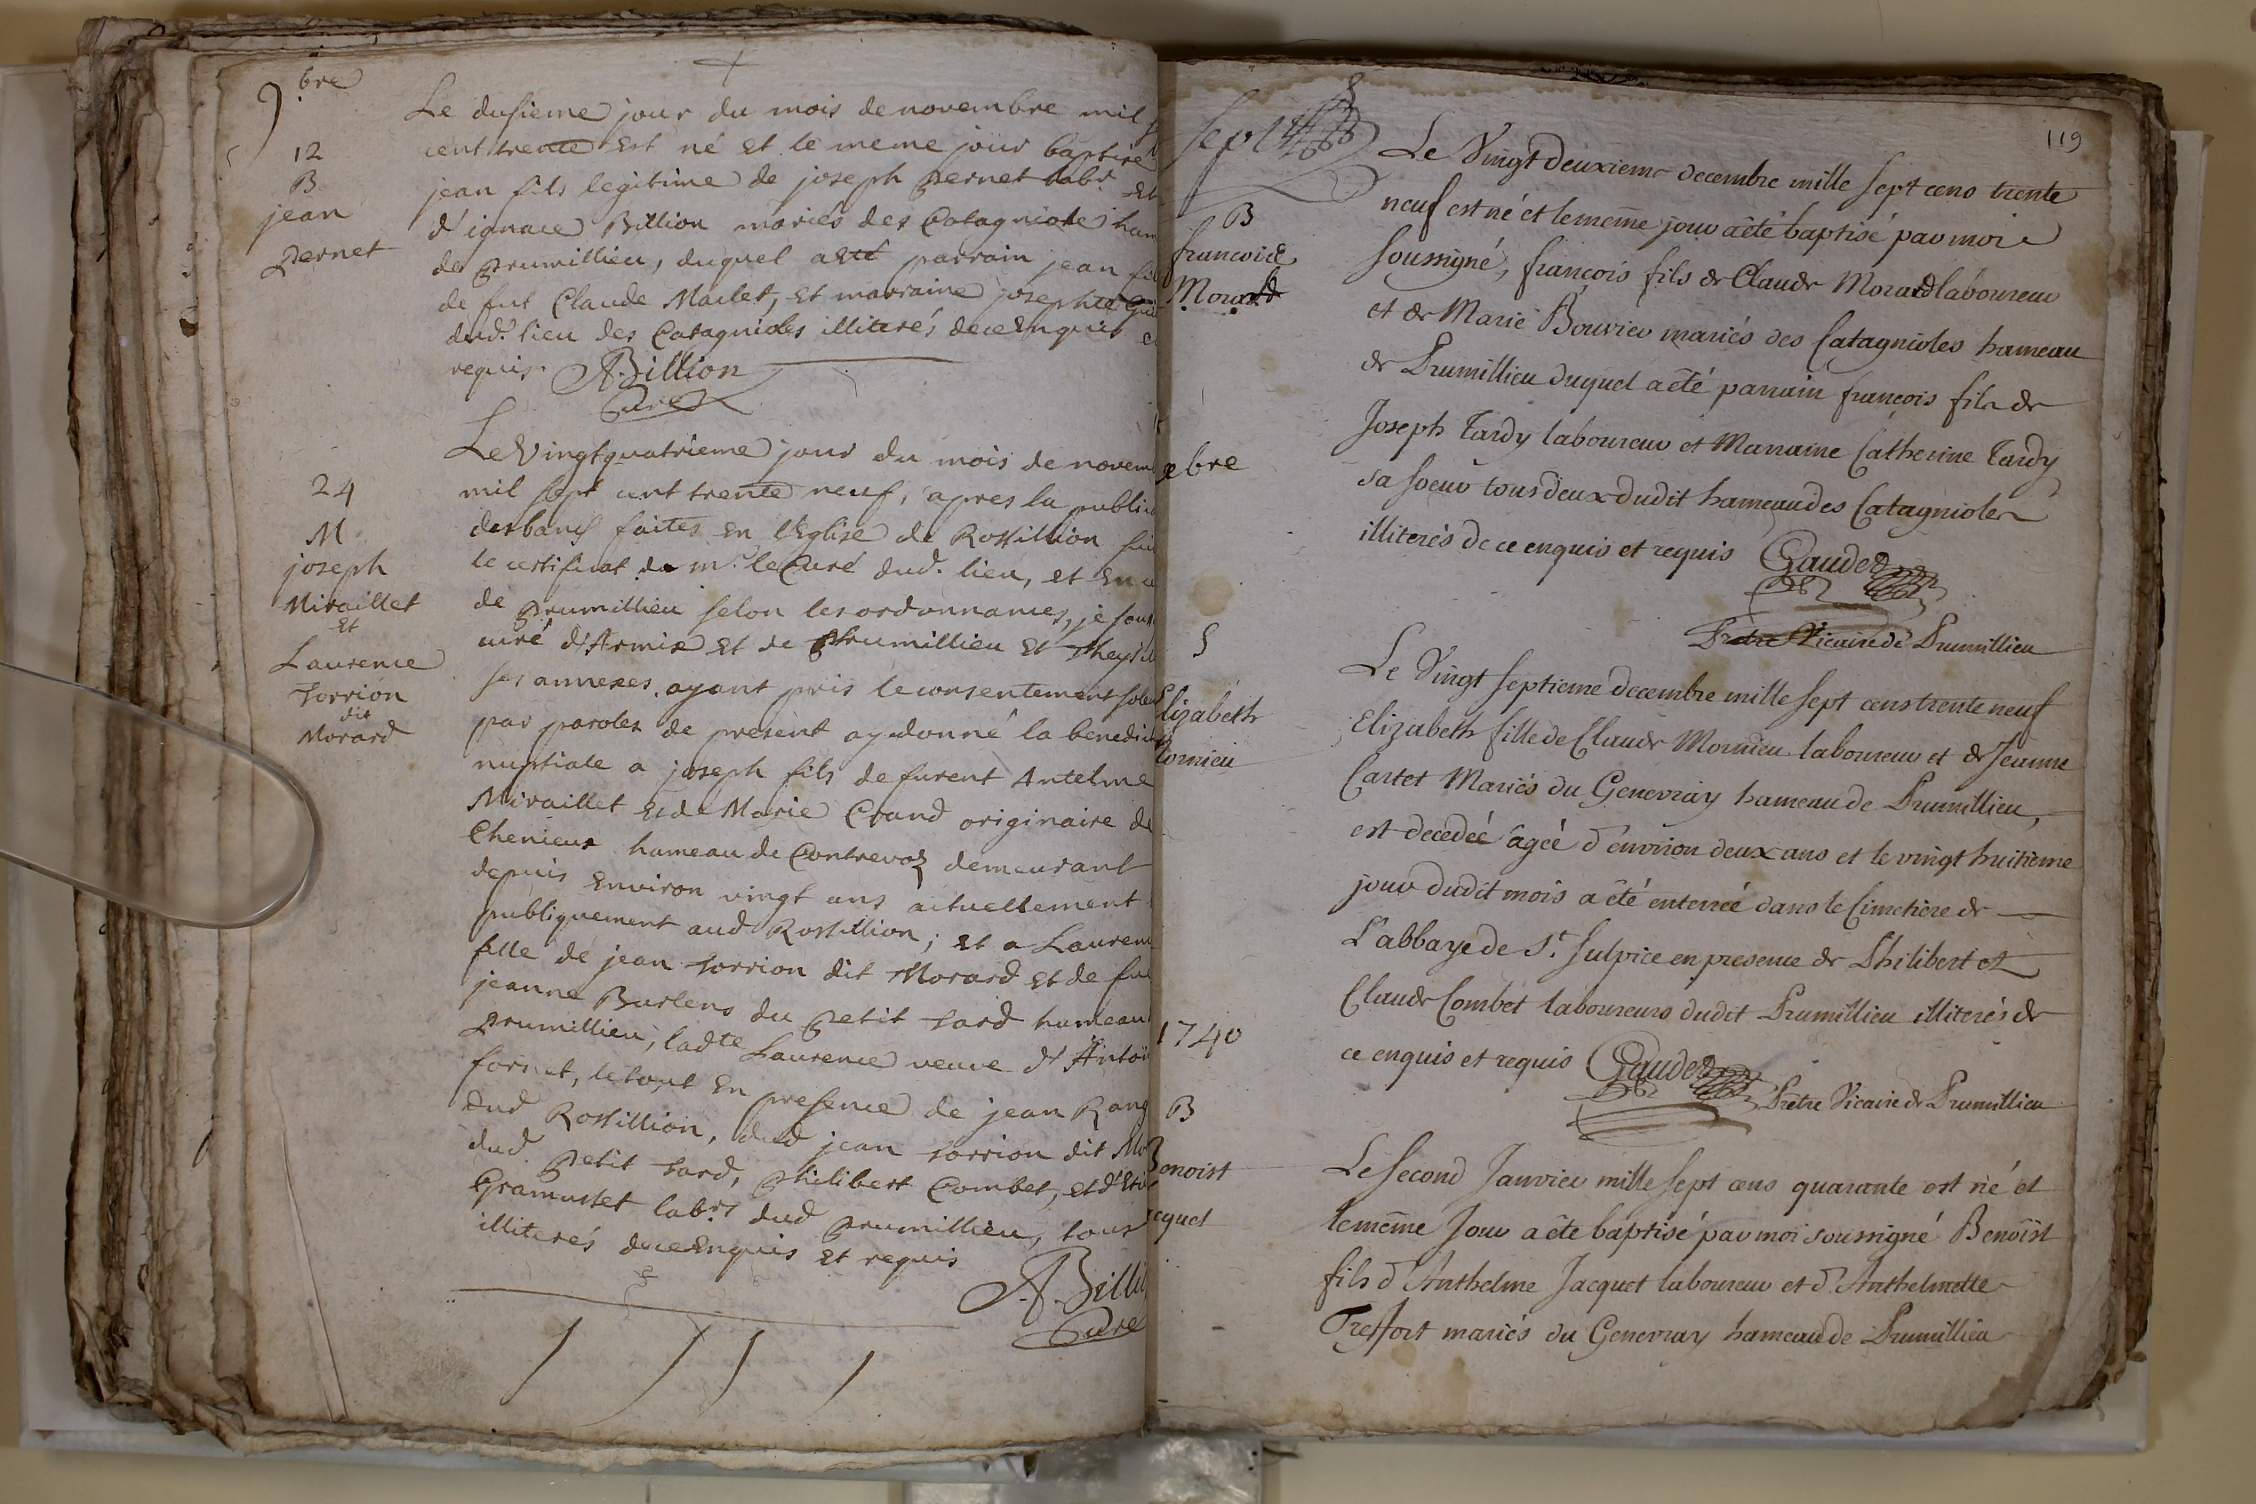 9.bre
12
B
jean
pernet
Le dusieme jour du mois de novembre mil
cent trente est né et le meme jour baptisé
jean fils legitime de joseph pernet labr. et
d'ignace Billion mariés des Catagniole ham
de prumillieu, duquel a eté parrain jean
de fut Claude Maclet, et marraine josephte
dud. lieu des Catagnioles illiterés de ce Enquis
requis. A. Billion
Curé
24
M
joseph
Miraillet
Et
Laurence
torrion
dit
Morard
Le Vingtquatrieme jour du mois de novem
mil sept cent trente neuf, apres la public
des bancs faites en l'Eglise de Rossillion
le certificat de mr. le Curé dud. lieu, et en
de prumillieu selon les ordonnances, je sous
curé d'Armix et de prumillieu et
ses annexes, ayant pris le consentement
par paroles de present ay donné la benedic
nuptiale a joseph fils de furent Antelme
Miraillet et de Marie Crand originaire de
Chenieux hameau de Contrevoz demeurant
depuis environ vingt ans actuellement
publiquement aud Rossillion; et a Lauren
fille de jean torrion dit Morard et de
jeanne Burlens du petit tard hameau
prumillieu, ladte Laurence veuve d'Antoi
fornet, le tout en presence de jean
dud Rossillion, dud jean torrion dit Mo
dud petit tard, philibert Combet, et d'
Gramusset labrs dud prumillieu, tous
illiterés de ce Enquis et requis
A. Billi
Curé
119
B
francoise
Morard
Le Vingt deuxieme decembre mille sept cens trente
neuf est né et le meme jour a été baptisé par moi
soussigné, françois fils de Claude Morard laboureur
et de Marie Bouvier mariés des Catagnioles hameau
de Prumillieu duquel a été parrain françois fils de
Joseph Tardy laboureur et Marraine Catherine Tardy
sa soeur tous deux dudit hameau des Catagnioles
illiterés de ce enquis et requis Gauded
Prêtre Vicaire de Prumillieu
xbre
S
Elizabeth
Mornieu
Le Vingt septieme decembre mille sept cens trente neuf
Elizabeth fille de Claude Mornieu laboureur et de Jeanne
Cartet Mariés du Genevray hameau de Prumillieu,
est decedeé âgeé d'environ deux ans et le vingt huitieme
jour dudit mois a été enterreé dans le Cimetiere de
L'abbaye de St. Sulpice en presence de Philibert et
Claude Combet laboureurs dudit Prumillieu illiterés de
ce enquis et requis Gauded
Prêtre Vicaire de Prumillieu
1740
B
Benoist
acquet
Le second Janvier mille sept cens quarante est né et
le même Jour a été baptisé par moi soussigné Benoist
fils d'Anthelme Jacquet laboureur et d'Anthelmette
Treffort mariés du Genevray hameau de Prumillieu